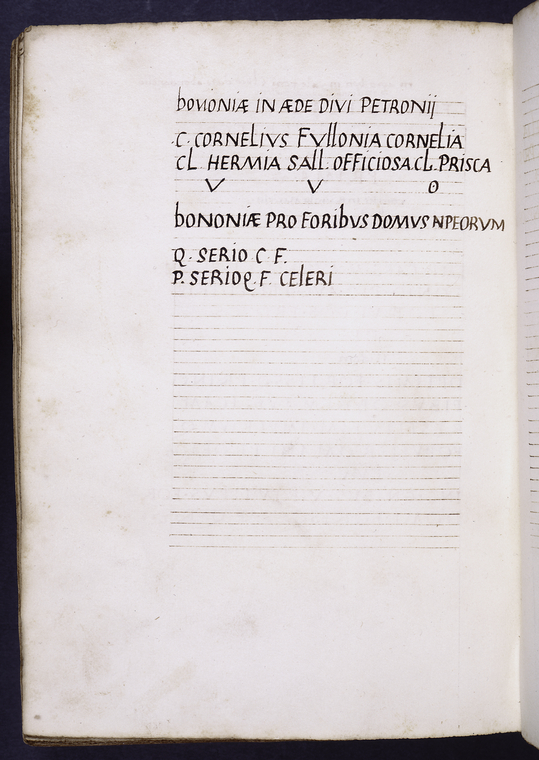 boиoniæ in æde divi Petronij
C. CORNELIVS FVllONIA CORNELIA
CL HERMIA SAll. OFFICIOSA CL. PRISCA
V V O
bonoNIÆ PRO FORIbVS DOMVS NPEORVM
Q. SERIO C F.
P. SERIO Q. F. CElERI